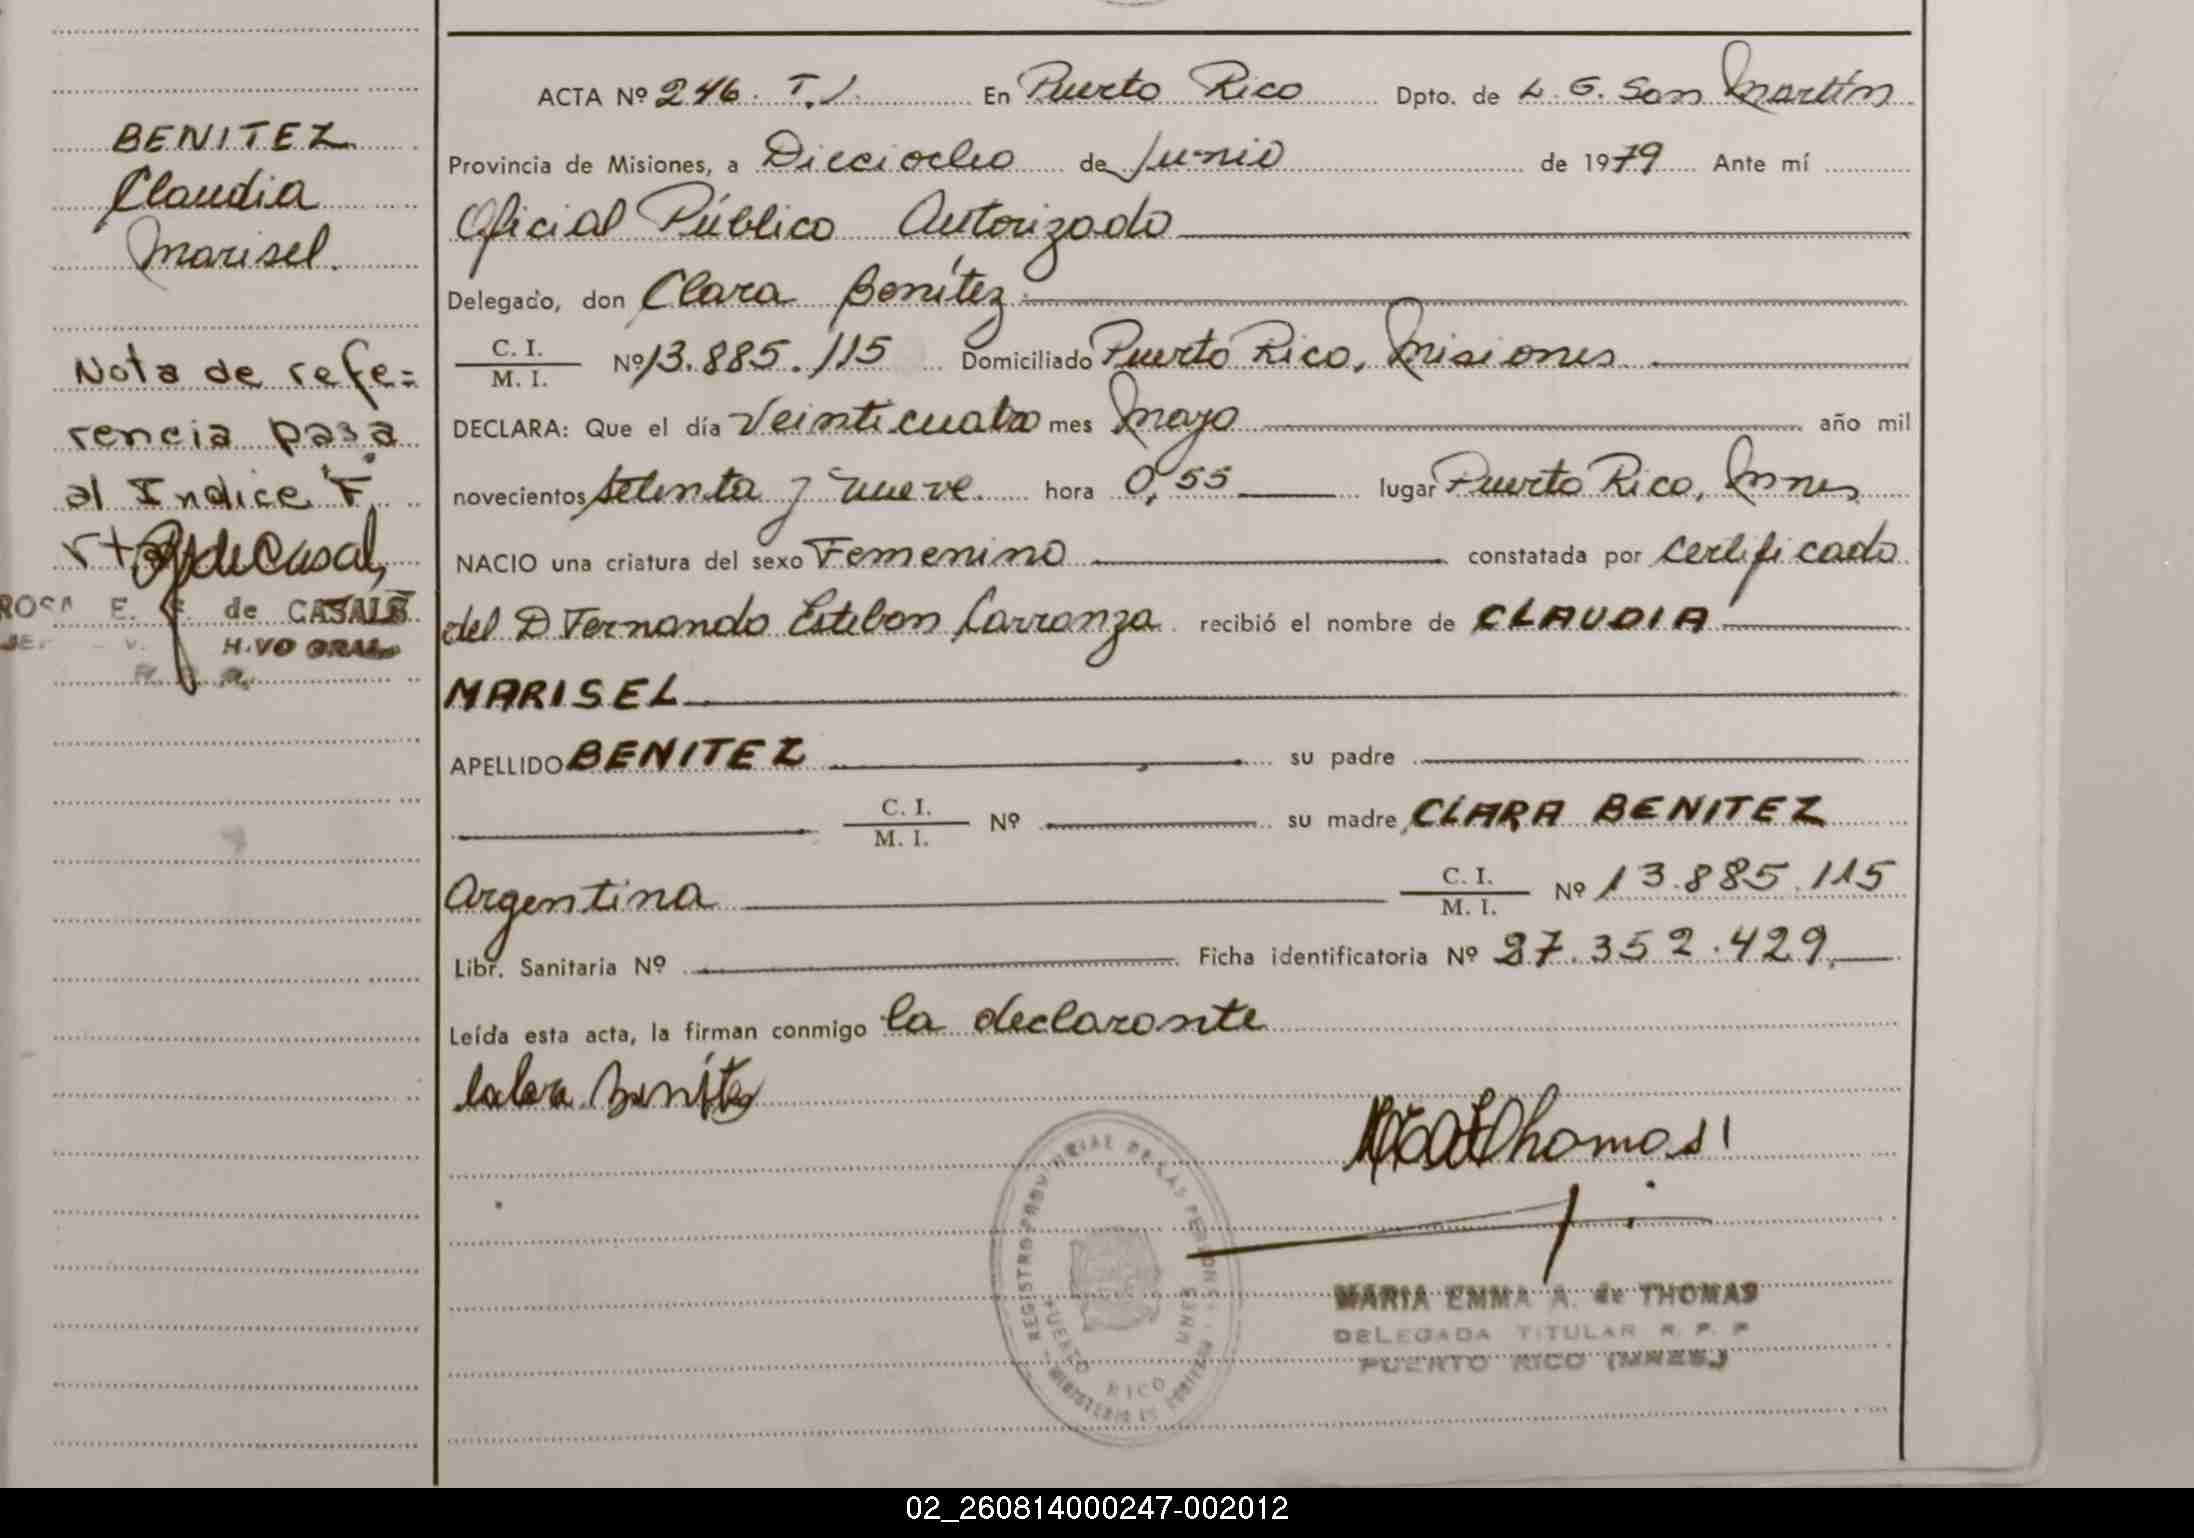 BENITEZ
Claudia
Marisel.
Nota de refe=
rencia pasa
al Indice "F"
de CASALS
ACTA Nº 246. T.I. En Puerto Rico Dpto. de L. G. San Martín
Provincia de Misiones, a Dieciocho de Junio de 1979 Ante mí
Oficial Público Autorizado
Delegado, don Clara Benítez
C. I.
M. I. Nº 13.885.115 Domiciliado Puerto Rico, Misiones
DECLARA: Que el día Veinticuatro mes Mayo año mil
novecientos setenta y nueve hora 0,55 lugar Puerto Rico, Mnes
NACIO una criatura del sexo Femenino constatada por certificado
del D Fernando Esteban Carranza recibió el nombre de CLAUDIA
MARISEL
APELLIDO BENITEZ su padre
C. I.
M. I. Nº su madre CLARA BENITEZ
Argentina C. I.
M. I. Nº 13.885.115
Libr. Sanitaria Nº Ficha identificatoria Nº 27.352.429
Leída esta acta, la firman conmigo la declarante
Clara Benítez
Thomas
REGISTRO PROVINCIAL DE LAS PERSONAS
PUERTO RICO MNES
MARIA EMMA A. de THOMAS
DELEGADA TITULAR R. P. P
PUERTO RICO (MNES.)
02_260814000247-002012